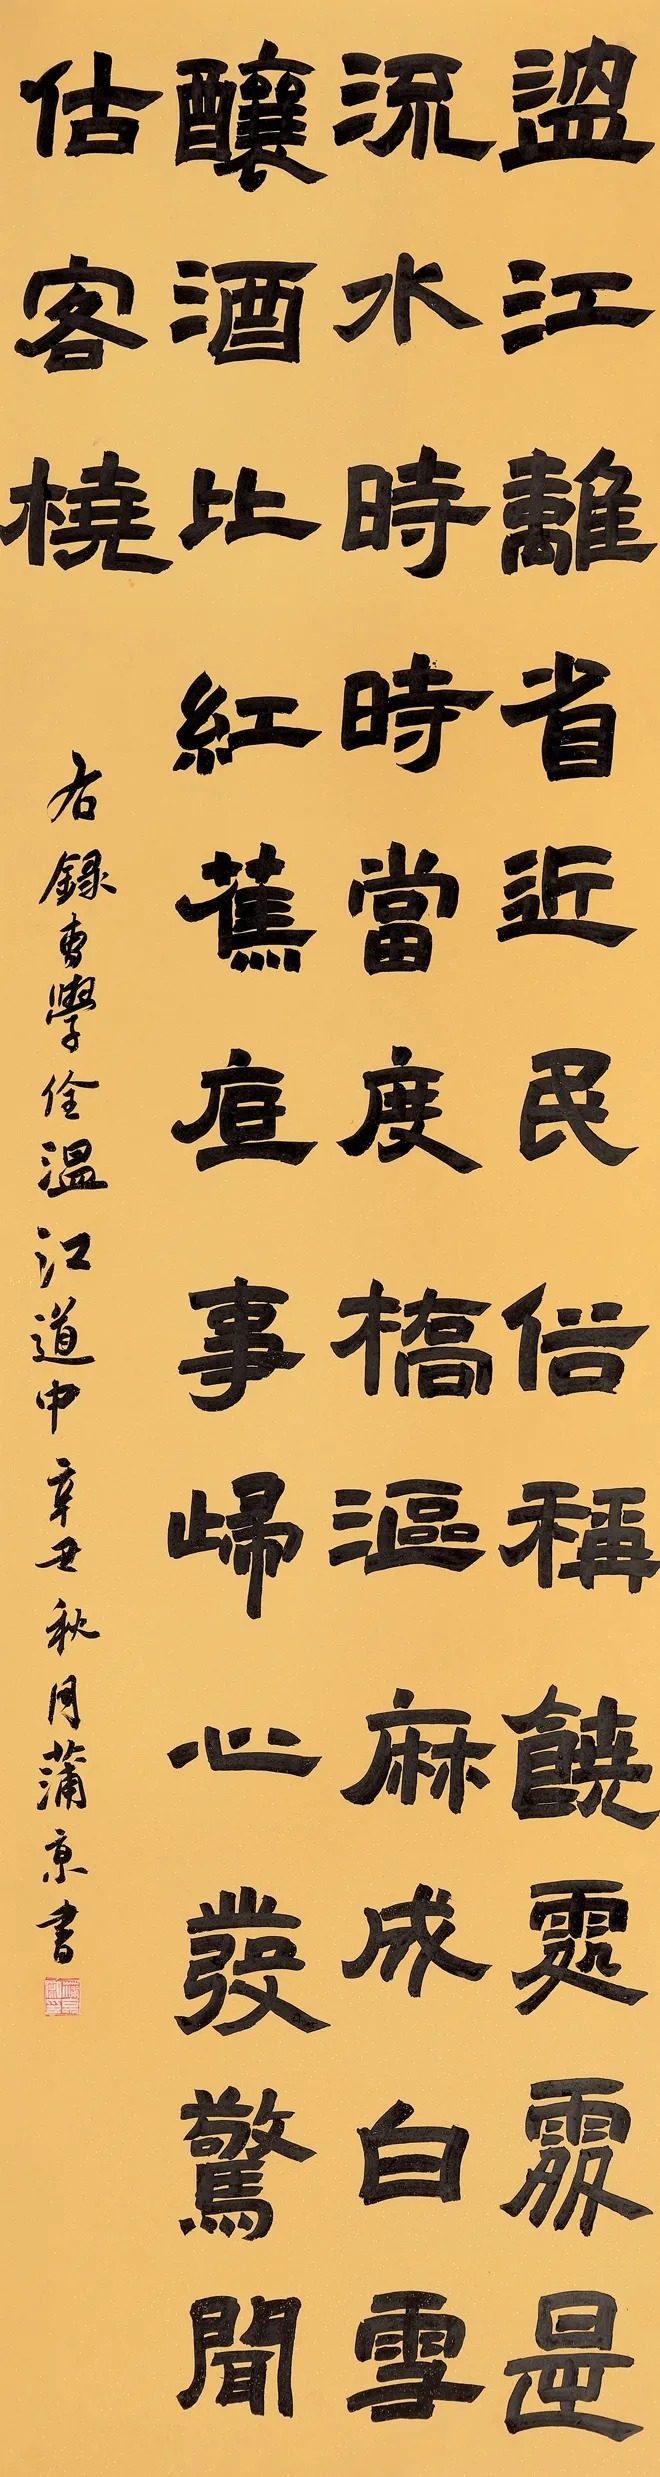 溫江離省近民俗稱饒處處是
流水時時當度橋漚麻成白雪
釀酒比紅蕉底事歸心發驚聞
估客橈
右錄曹學佺溫江道中辛丑秋月蒲京書